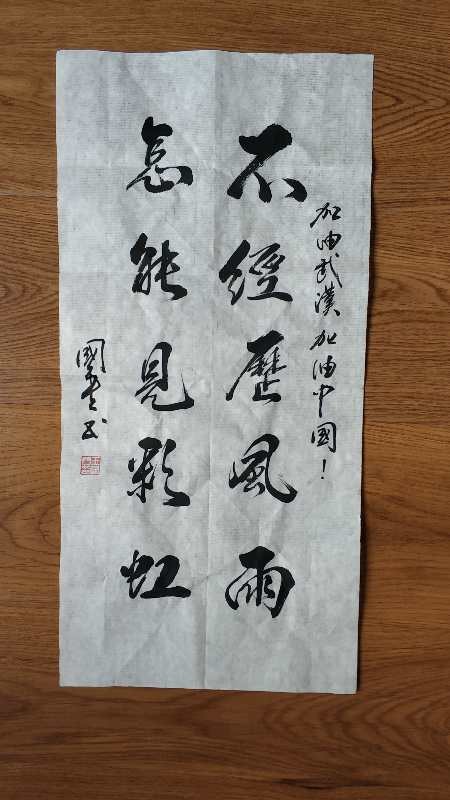 加油武漢 加油中國！
不經歷風雨
怎能見彩虹
國